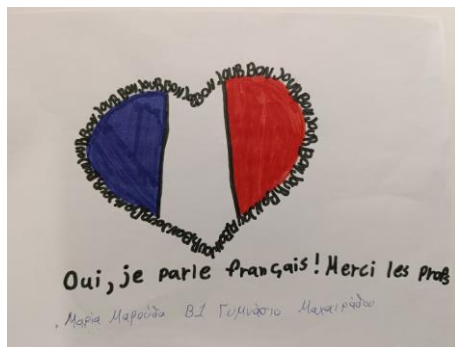 BONJOUR BONJOUR BONJOUR BONJOUR BONJOUR BONJOUR BONJOUR BONJOUR BONJOUR BONJOUR BONJOUR BONJOUR
Oui, je parle français! Merci les profs
Μαρία Μαρούδα Β1 Γυμνάσιο Μαχαιράδου